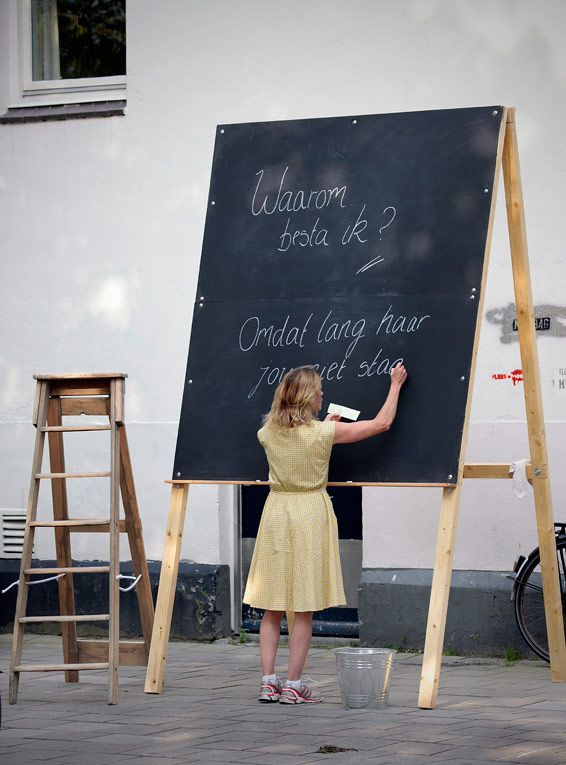 Waarom
besta ik?
Omdat lang haar
jou niet staa